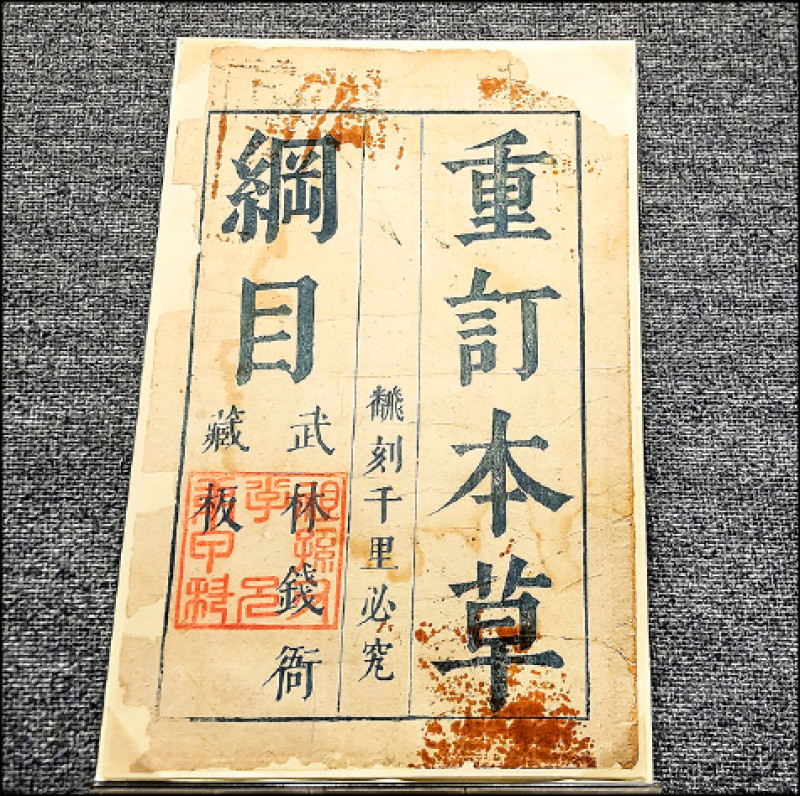 重訂本草
翻刻千里必究
綱目
武林錢衙
藏板